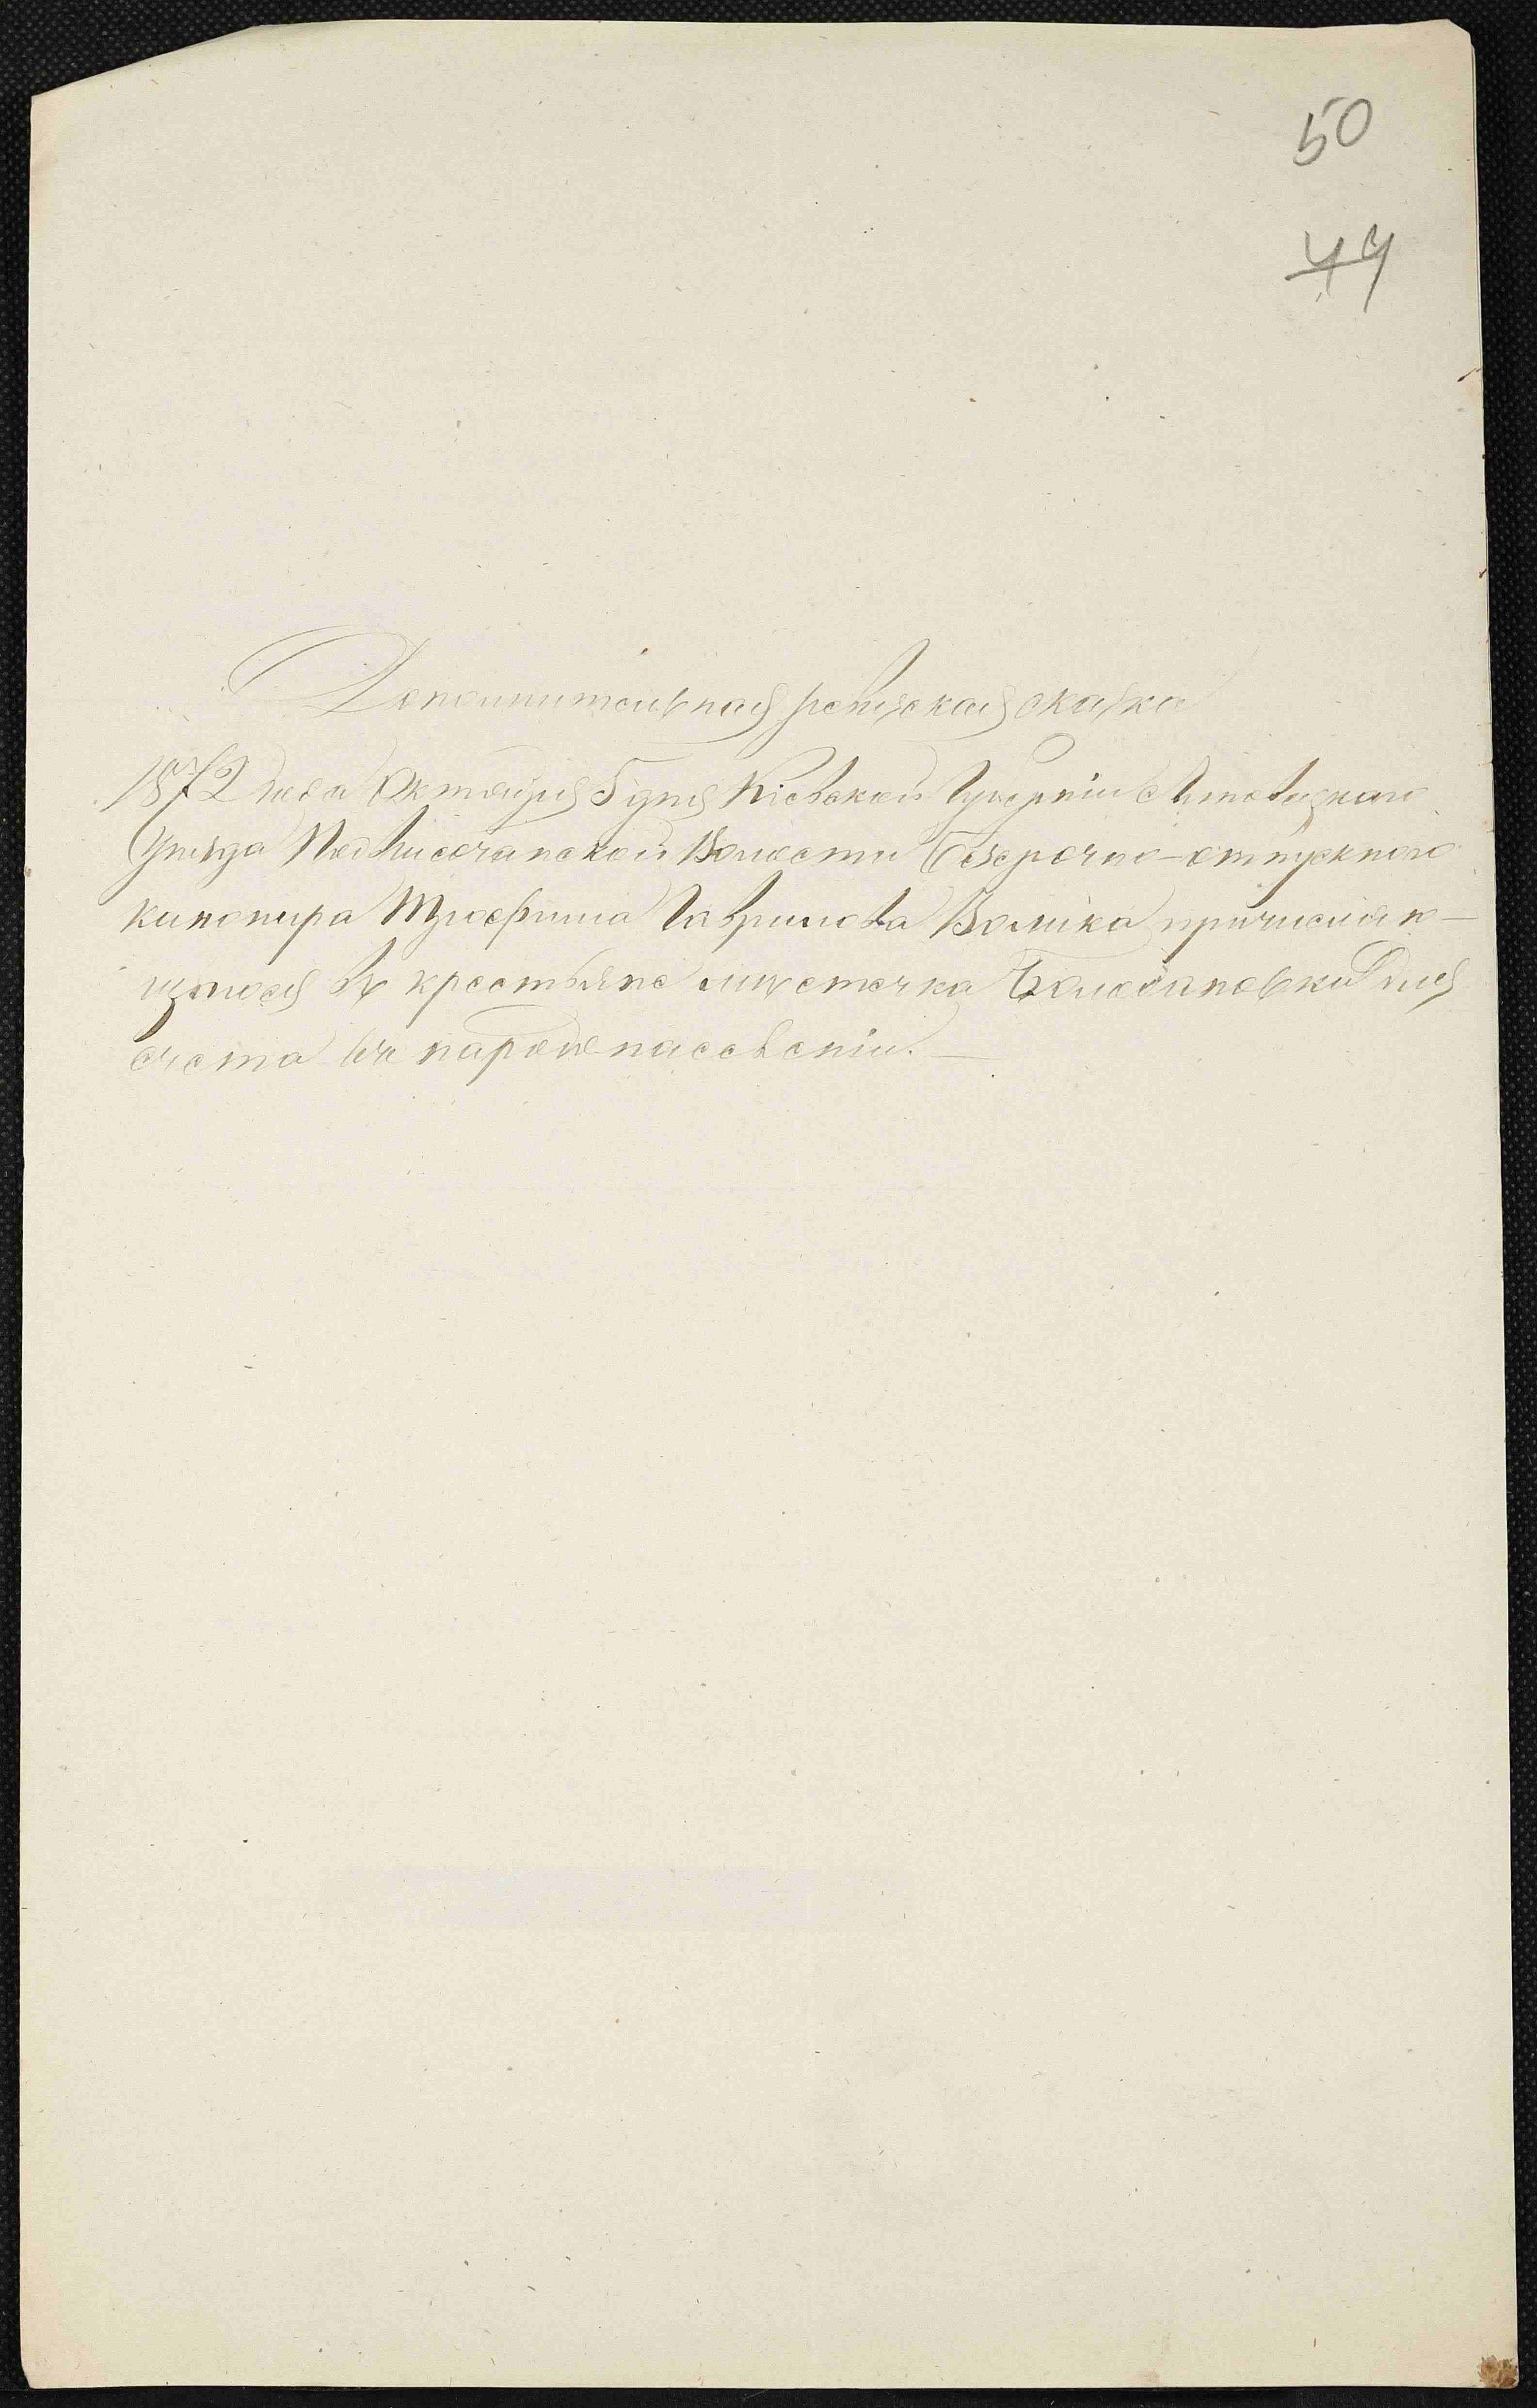 50
44
Дополнительная ревизская сказка
1872 года Октября 5 дня Кіевской Губерніи Липовецкаго
Уѣзда Подвысочанской Волости безсрочно-отпускнаго
канонира Трофима Гаврилова Волика причисляю-
щагося въ крестьяне мѣстечка для
счета въ народонаселеніи.